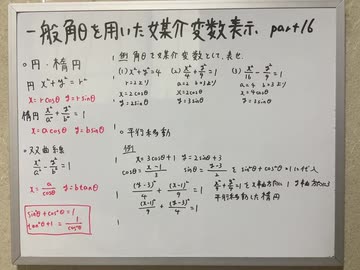 一般角θを用いた媒介変数表示. part16
○円・楕円
円 x²+y²=r²
x=rcosθ y=rsinθ
楕円 x²/a²+y²/b²=1
x=acosθ y=bsinθ
○双曲線
x²/a²-y²/b²=1
x=a/cosθ y=btanθ
sin²θ+cos²θ=1
tan²θ+1=1/cos²θ
例 角θを媒介変数として、表せ.
(1) x²+y²=4 (2) x²/4+y²/9=1 (3) x²/16-y²/9=1
r=2より a=2 b=3より a=4 b=3より
x=2cosθ x=2cosθ
y=2sinθ y=3sinθ
○平行移動
例
x=3cosθ+1 y=2sinθ+3
cosθ=(x-1)/3 sinθ=(y-3)/2 を sin²θ+cos²θ=1に代入
(y-3)²/4+(x-1)²/9=1
(x-1)²/9+(y-3)²/4=1
x²/9+y²/4=1をx軸方向に1 y軸方向に3
平行移動した楕円